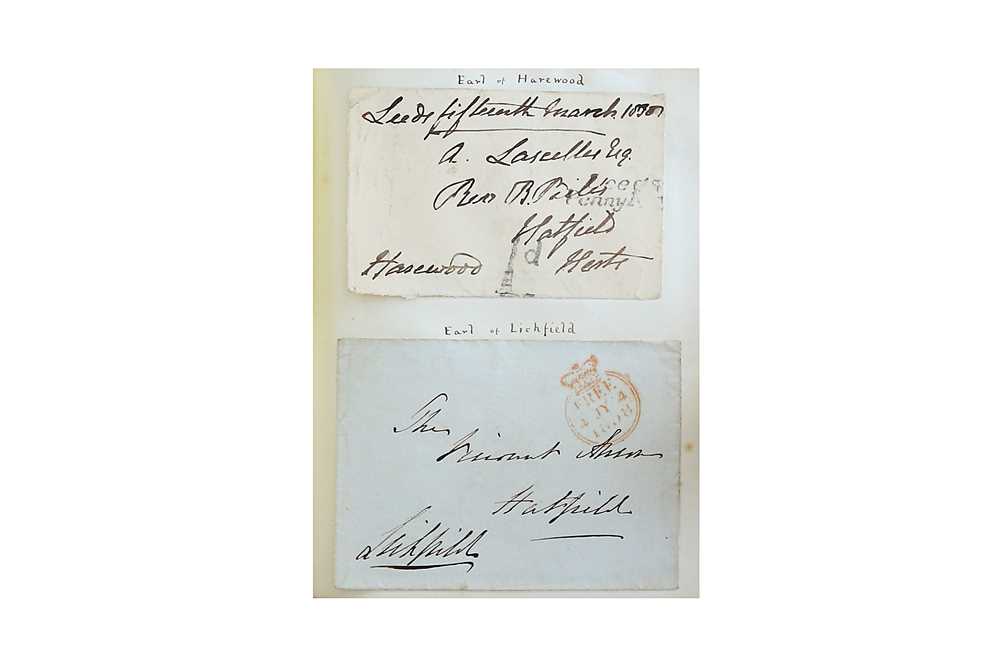 Earl of Harewood
Leeds fifteenth March
A. Lascelles Esq.
Rev B. Peile's
Leeds
Penny
Hatfield
Harewood
d
Herts
Earl of Lichfield
FREE
4 JY 4
1838
The
Viscount Anson
Hatfield
Lichfield